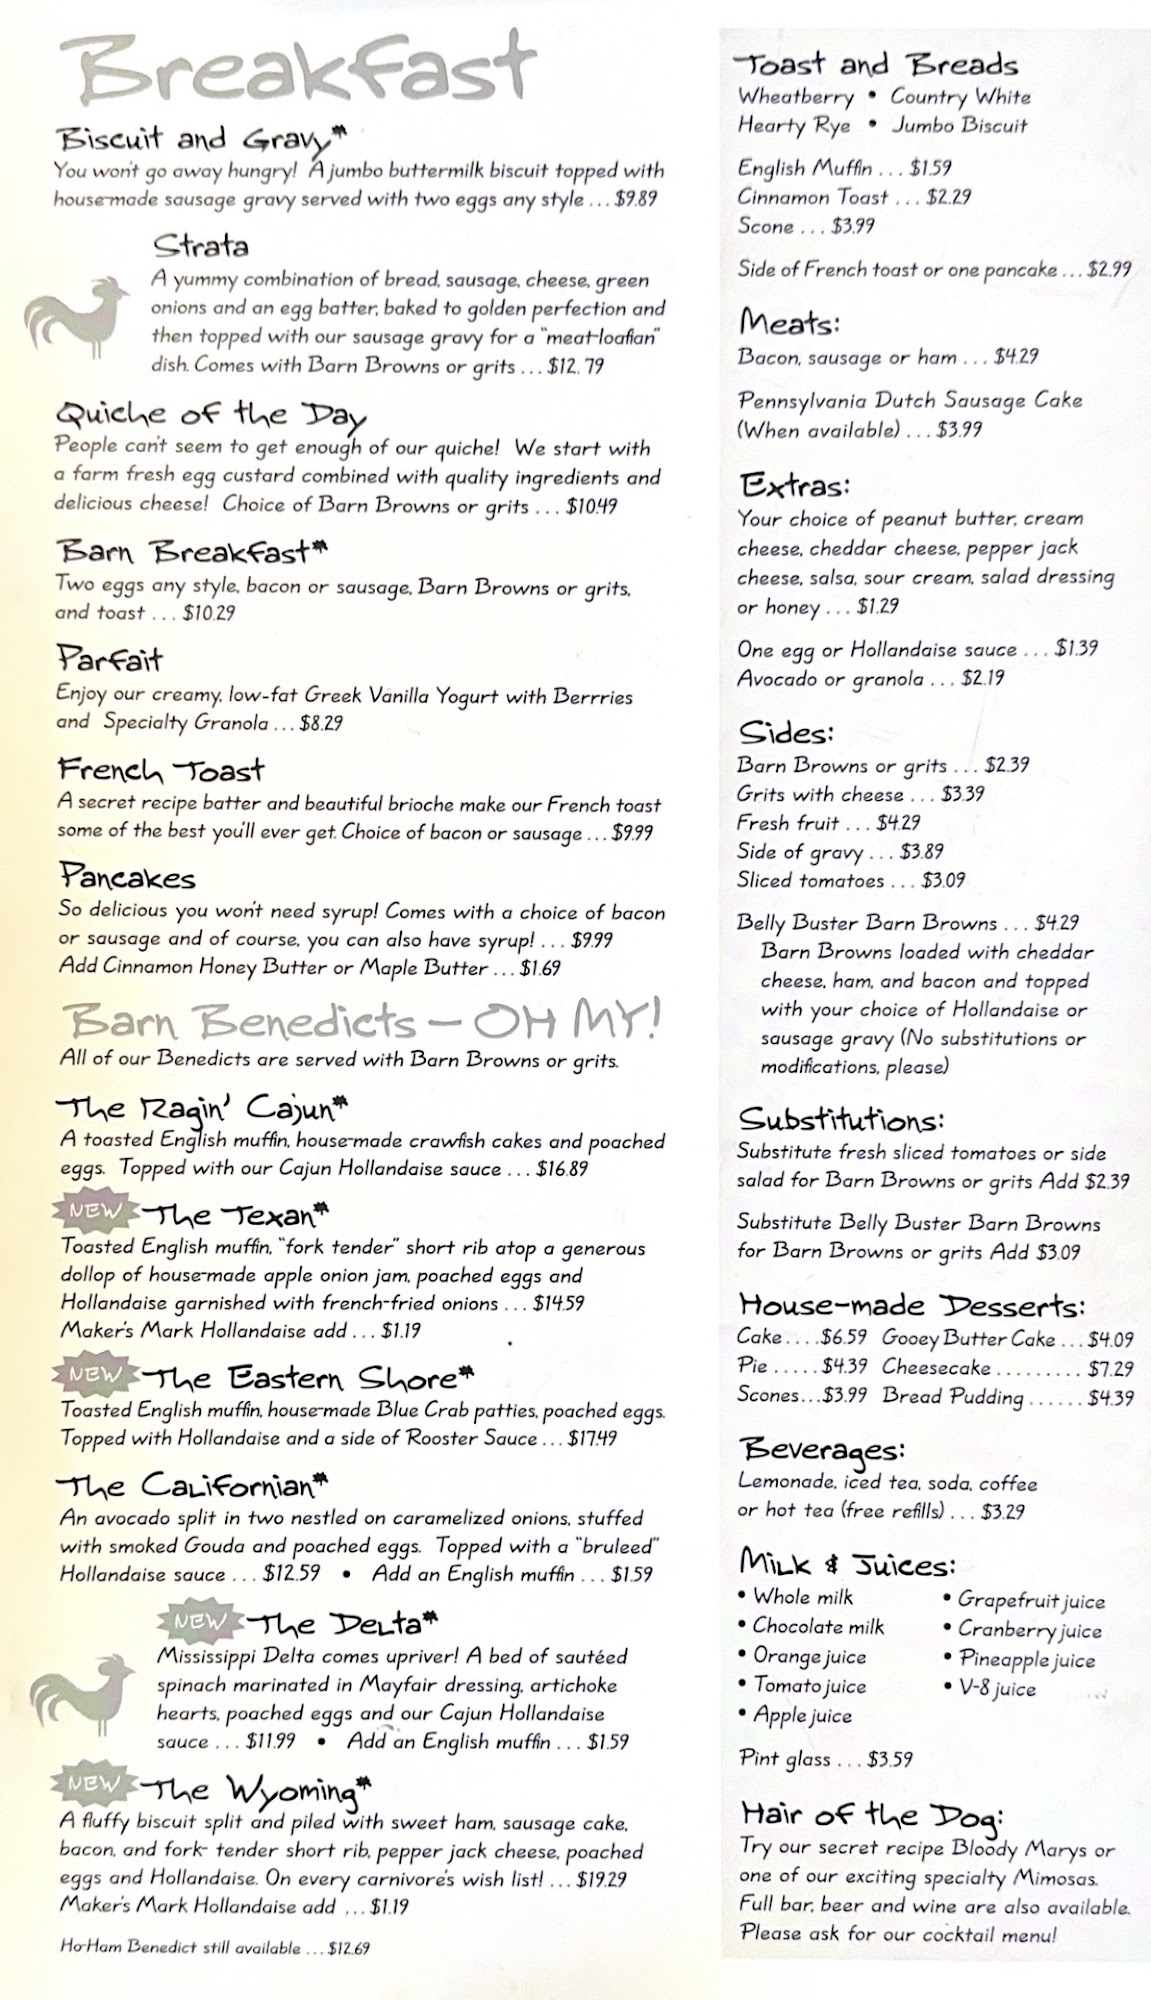 Breakfast
Biscuit and Gravy*
You won't go away hungry! A jumbo buttermilk biscuit topped with
house-made sausage gravy served with two eggs any style ... $9.89
Strata
A yummy combination of bread, sausage, cheese, green
onions and an egg batter, baked to golden perfection and
then topped with our sausage gravy for a "meat-loafian"
dish. Comes with Barn Browns or grits ... $12.79
Quiche of the Day
People can't seem to get enough of our quiche! We start with
a farm fresh egg custard combined with quality ingredients and
delicious cheese! Choice of Barn Browns or grits ... $10.49
Barn Breakfast*
Two eggs any style, bacon or sausage, Barn Browns or grits,
and toast ... $10.29
Parfait
Enjoy our creamy, low-fat Greek Vanilla Yogurt with Berrries
and Specialty Granola ... $8.29
French Toast
A secret recipe batter and beautiful brioche make our French toast
some of the best you'll ever get. Choice of bacon or sausage ... $9.99
Pancakes
So delicious you won't need syrup! Comes with a choice of bacon
or sausage and of course, you can also have syrup! ... $9.99
Add Cinnamon Honey Butter or Maple Butter ... $1.69
Barn Benedicts – OH MY!
All of our Benedicts are served with Barn Browns or grits.
The Ragin' Cajun*
A toasted English muffin, house-made crawfish cakes and poached
eggs. Topped with our Cajun Hollandaise sauce ... $16.89
NEW The Texan*
Toasted English muffin, "fork tender" short rib atop a generous
dollop of house-made apple onion jam, poached eggs and
Hollandaise garnished with french-fried onions ... $14.59
Maker's Mark Hollandaise add ... $1.19
NEW The Eastern Shore*
Toasted English muffin, house-made Blue Crab patties, poached eggs.
Topped with Hollandaise and a side of Rooster Sauce ... $17.49
The Californian*
An avocado split in two nestled on caramelized onions, stuffed
with smoked Gouda and poached eggs. Topped with a "bruleed"
Hollandaise sauce ... $12.59 • Add an English muffin ... $1.59
NEW The Delta*
Mississippi Delta comes upriver! A bed of sautéed
spinach marinated in Mayfair dressing, artichoke
hearts, poached eggs and our Cajun Hollandaise
sauce ... $11.99 • Add an English muffin ... $1.59
NEW The Wyoming*
A fluffy biscuit split and piled with sweet ham, sausage cake,
bacon, and fork- tender short rib, pepper jack cheese, poached
eggs and Hollandaise. On every carnivore's wish list! ... $19.29
Maker's Mark Hollandaise add ... $1.19
Ho-Ham Benedict still available ... $12.69
Toast and Breads
Wheatberry • Country White
Hearty Rye • Jumbo Biscuit
English Muffin ... $1.59
Cinnamon Toast ... $2.29
Scone ... $3.99
Side of French toast or one pancake ... $2.99
Meats:
Bacon, sausage or ham ... $4.29
Pennsylvania Dutch Sausage Cake
(When available) ... $3.99
Extras:
Your choice of peanut butter, cream
cheese, cheddar cheese, pepper jack
cheese, salsa, sour cream, salad dressing
or honey ... $1.29
One egg or Hollandaise sauce ... $1.39
Avocado or granola ... $2.19
Sides:
Barn Browns or grits ... $2.39
Grits with cheese ... $3.39
Fresh fruit ... $4.29
Side of gravy ... $3.89
Sliced tomatoes ... $3.09
Belly Buster Barn Browns ... $4.29
Barn Browns loaded with cheddar
cheese, ham, and bacon and topped
with your choice of Hollandaise or
sausage gravy (No substitutions or
modifications, please)
Substitutions:
Substitute fresh sliced tomatoes or side
salad for Barn Browns or grits Add $2.39
Substitute Belly Buster Barn Browns
for Barn Browns or grits Add $3.09
House-made Desserts:
Cake....$6.59 Gooey Butter Cake ... $4.09
Pie .....$4.39 Cheesecake ......... $7.29
Scones...$3.99 Bread Pudding ...... $4.39
Beverages:
Lemonade, iced tea, soda, coffee
or hot tea (free refills) ... $3.29
Milk & Juices:
• Whole milk
• Chocolate milk
• Orange juice
• Tomato juice
• Apple juice
• Grapefruit juice
• Cranberry juice
• Pineapple juice
• V-8 juice
Pint glass ... $3.59
Hair of the Dog:
Try our secret recipe Bloody Marys or
one of our exciting specialty Mimosas.
Full bar, beer and wine are also available.
Please ask for our cocktail menu!